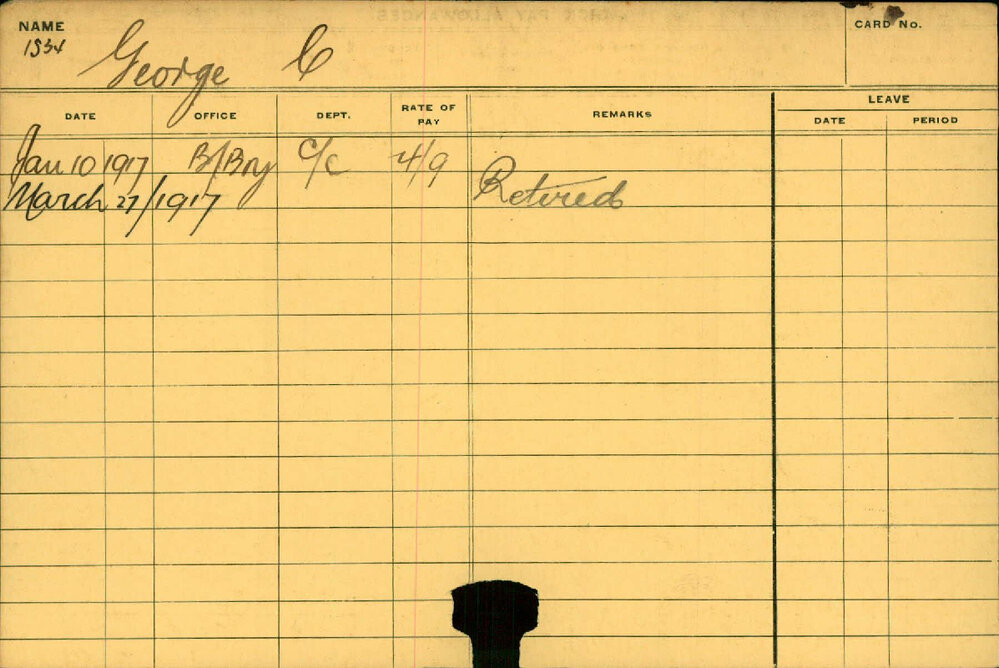 NAME
CARD No.
1534
George C
DATE OFFICE DEPT. RATE OF PAY REMARKS LEAVE
DATE PERIOD
Jan 10 1917 B/Bry C/C 4/9
March 27/1917 Retired